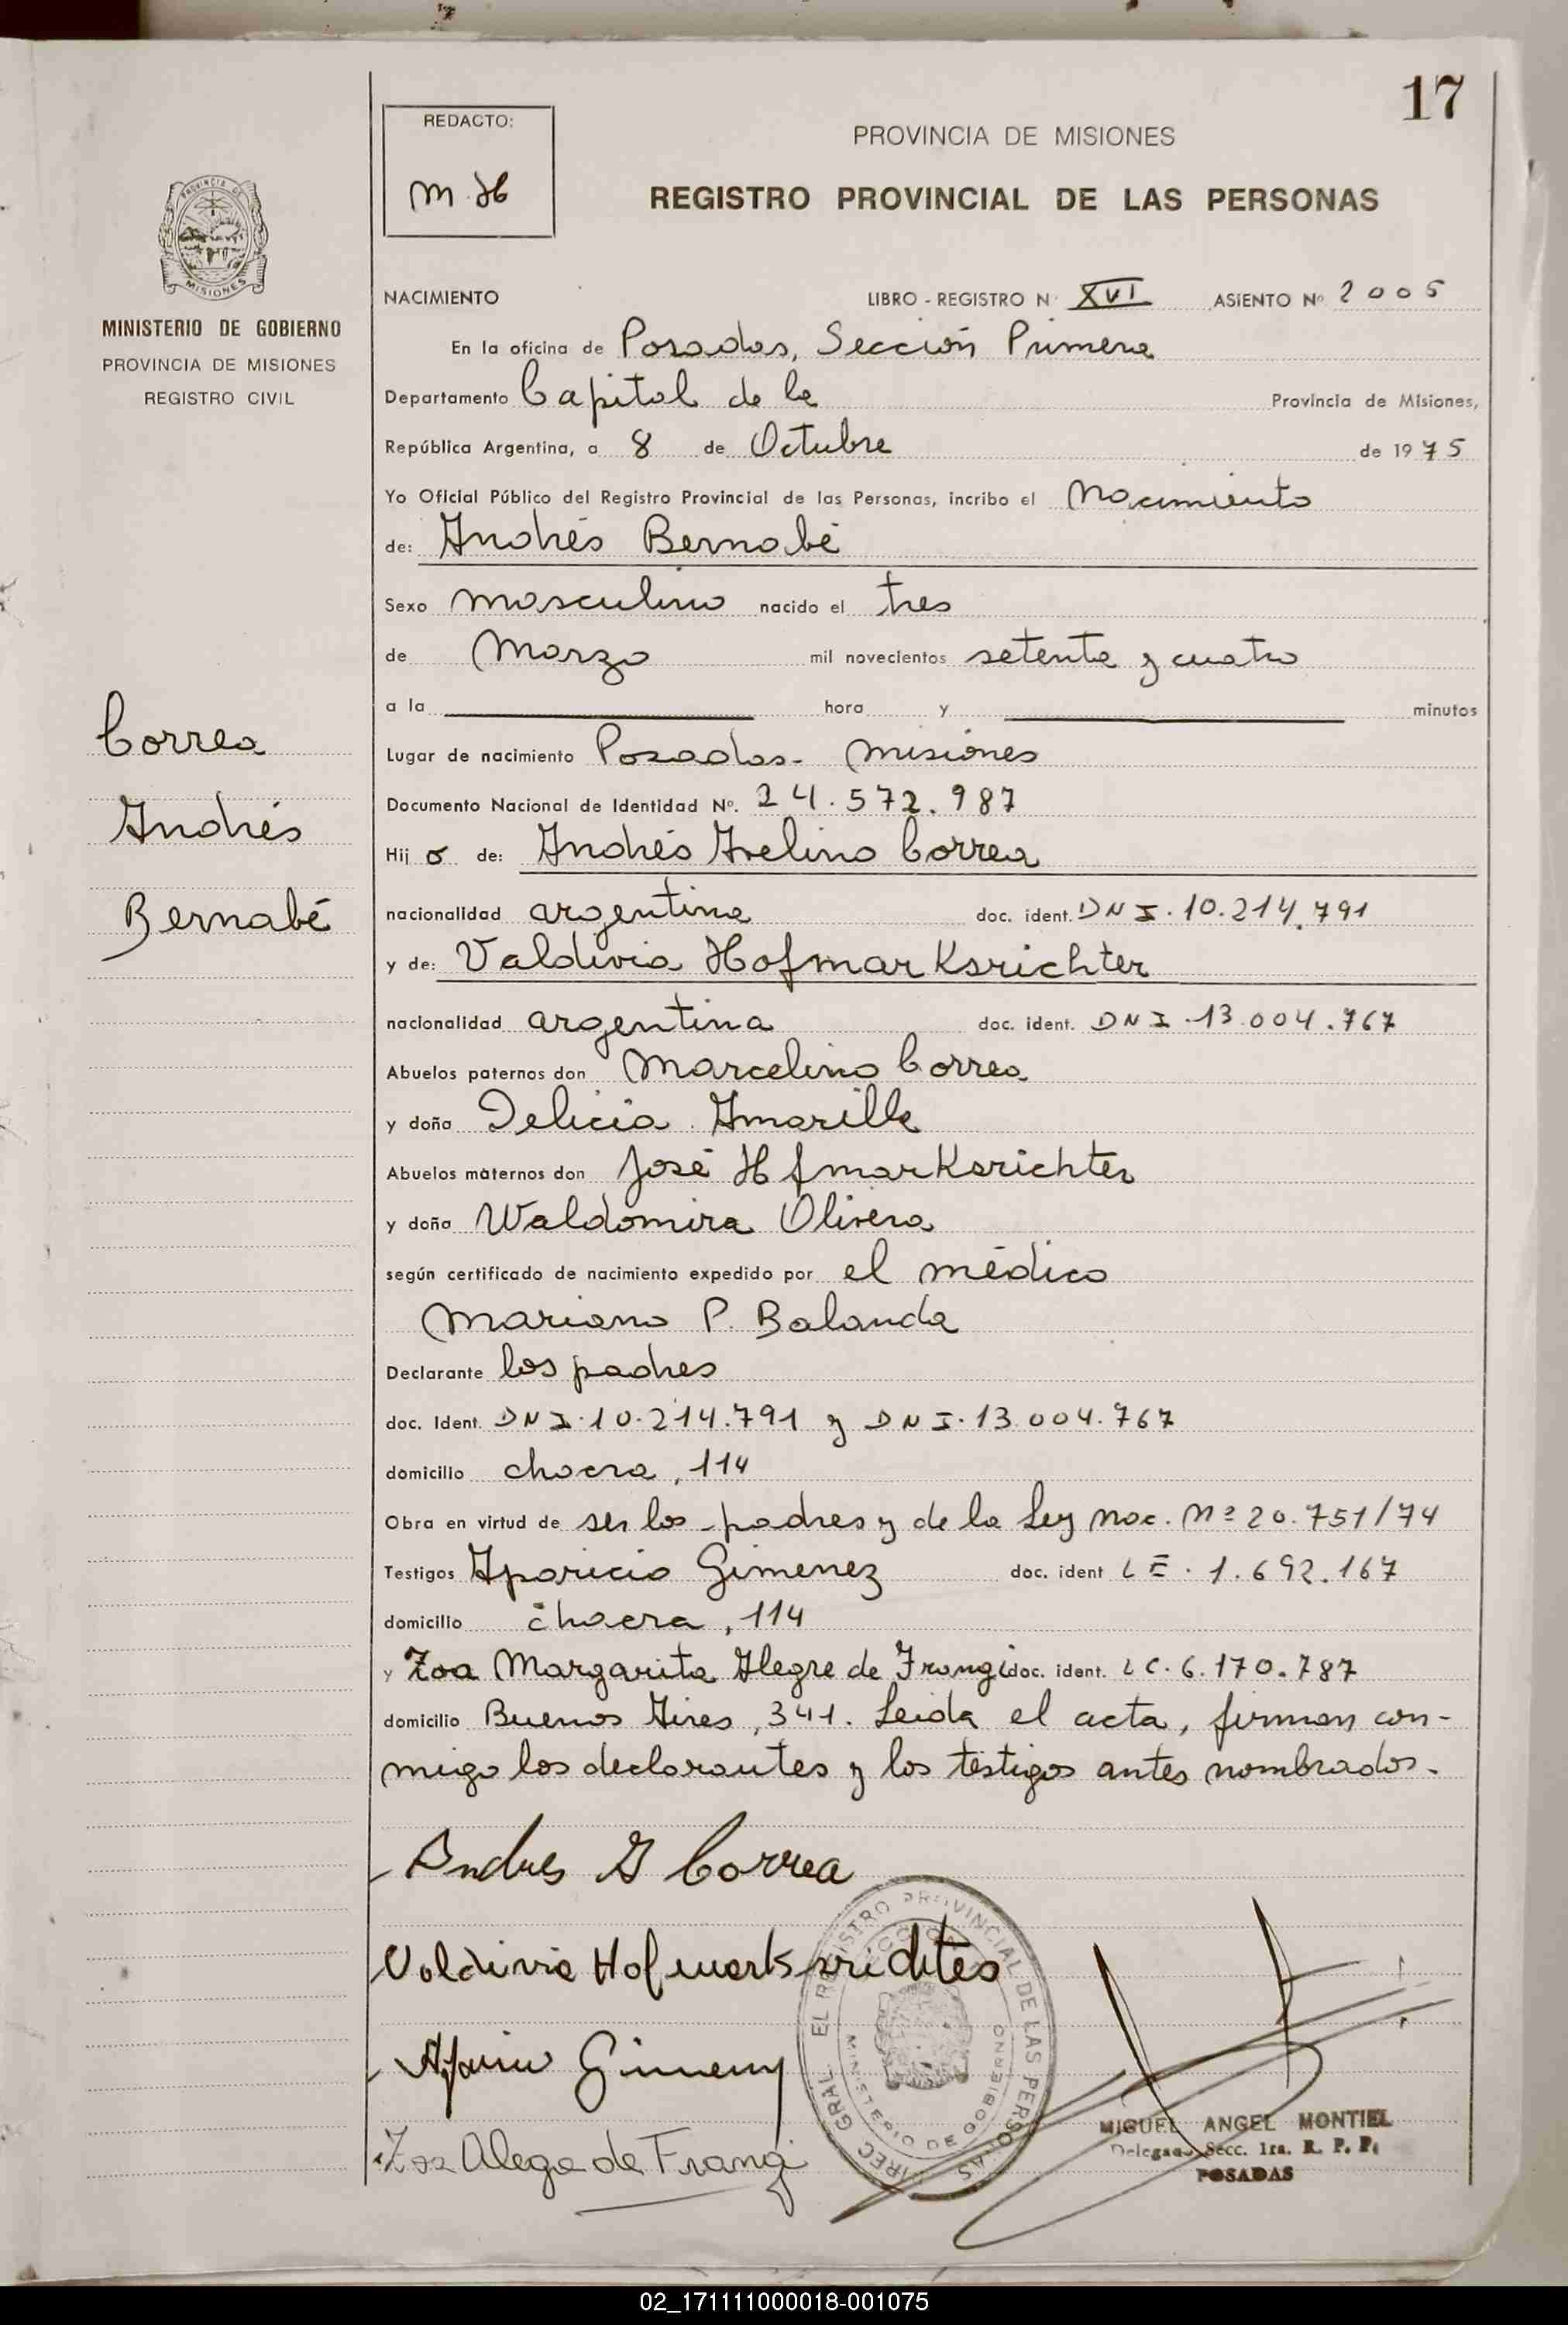 17
REDACTO:
M.H
PROVINCIA DE MISIONES
REGISTRO PROVINCIAL DE LAS PERSONAS
PROVINCIA DE MISIONES
MINISTERIO DE GOBIERNO
PROVINCIA DE MISIONES
REGISTRO CIVIL
Correa
Andrés
Bernabé
NACIMIENTO LIBRO - REGISTRO N° XVI ASIENTO Nº 2005
En la oficina de Posadas, Sección Primera
Departamento Capital de la Provincia de Misiones,
República Argentina, a 8 de Octubre de 1975
Yo Oficial Público del Registro Provincial de las Personas, incribo el Nacimiento
de: Andrés Bernabé
Sexo masculino nacido el tres
de Marzo mil novecientos setenta y cuatro
a la hora y minutos
Lugar de nacimiento Posadas- Misiones
Documento Nacional de Identidad Nº. 24.572.987
Hij o de: Andrés Avelino Correa
nacionalidad argentina doc. ident. DNI.10.214.791
y de: Valdivia Hofmarksrichter
nacionalidad argentina doc. ident. DNI.13.004.767
Abuelos paternos don Marcelino Correa
y doña Delicia Amarilla
Abuelos maternos don José Hfmarksrichter
y doña Waldomira Olivera
según certificado de nacimiento expedido por el médico
Mariano P. Balanda
Declarante los padres
doc. Ident. DNI.10.214.791 y DNI.13.004.767
domicilio chacra, 114
Obra en virtud de ser los padres y de la Ley Nac. Nº 20.751/74
Testigos Aparicio Gimenez doc. ident LE. 1.692.167
domicilio chacra, 114
y Zoa Margarita Alegre de Frangi doc. ident. LC. 6.170.787
domicilio Buenos Aires, 341. Leida el acta, firman con-
migo los declarantes y los testigos antes nombrados.
Andres A Correa
Valdivia Hofmarksrichter
Gimenez
Zoa Alegre de Frangi
DIREC. GRAL. EL REGISTRO PROVINCIAL DE LAS PERSONAS
MINISTERIO DE GOBIERNO
MIGUEL ANGEL MONTIEL
Delegado Secc. 1ra. R. P. P.
POSADAS
02_171111000018-001075